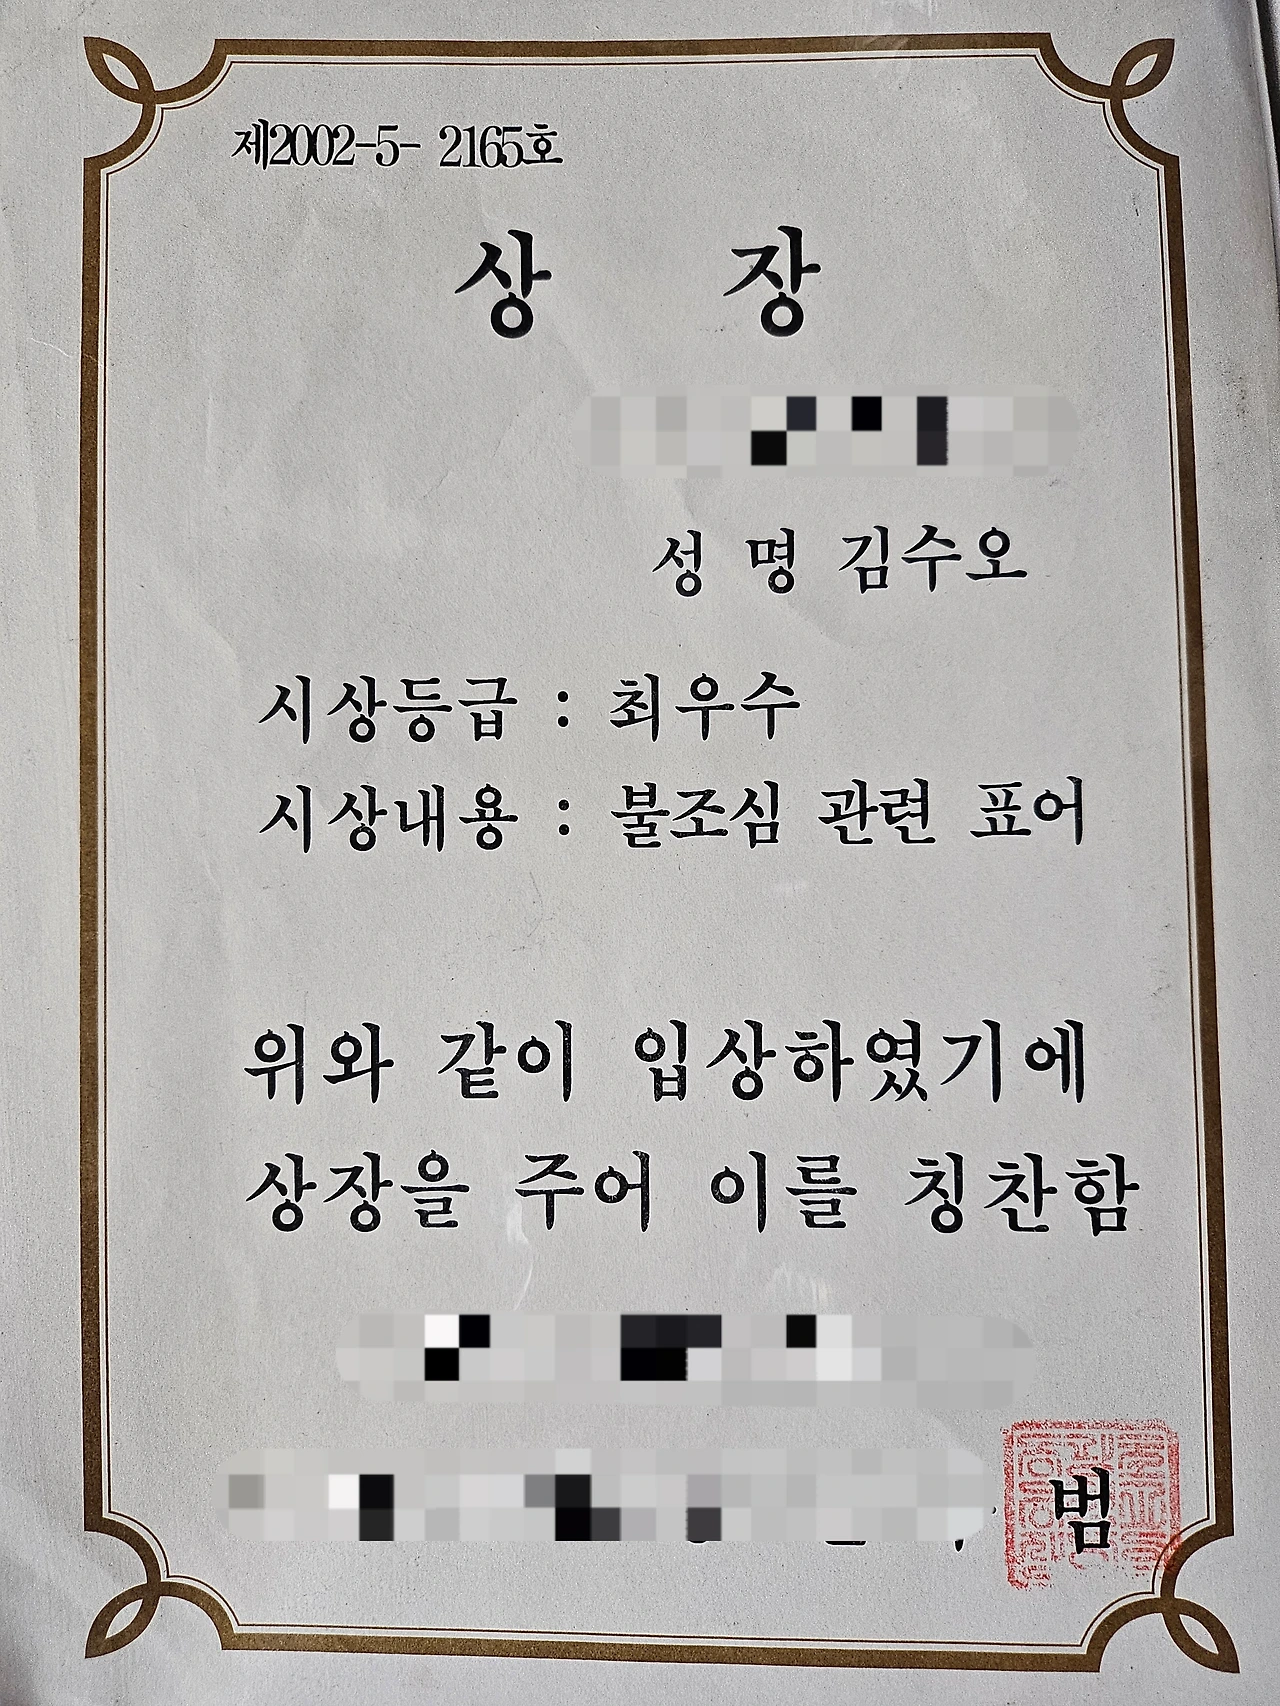 제2002-5- 2165호
상 장
성 명 김수오
시상등급 : 최우수
시상내용 : 불조심 관련 표어
위와 같이 입상하였기에
상장을 주어 이를 칭찬함
범